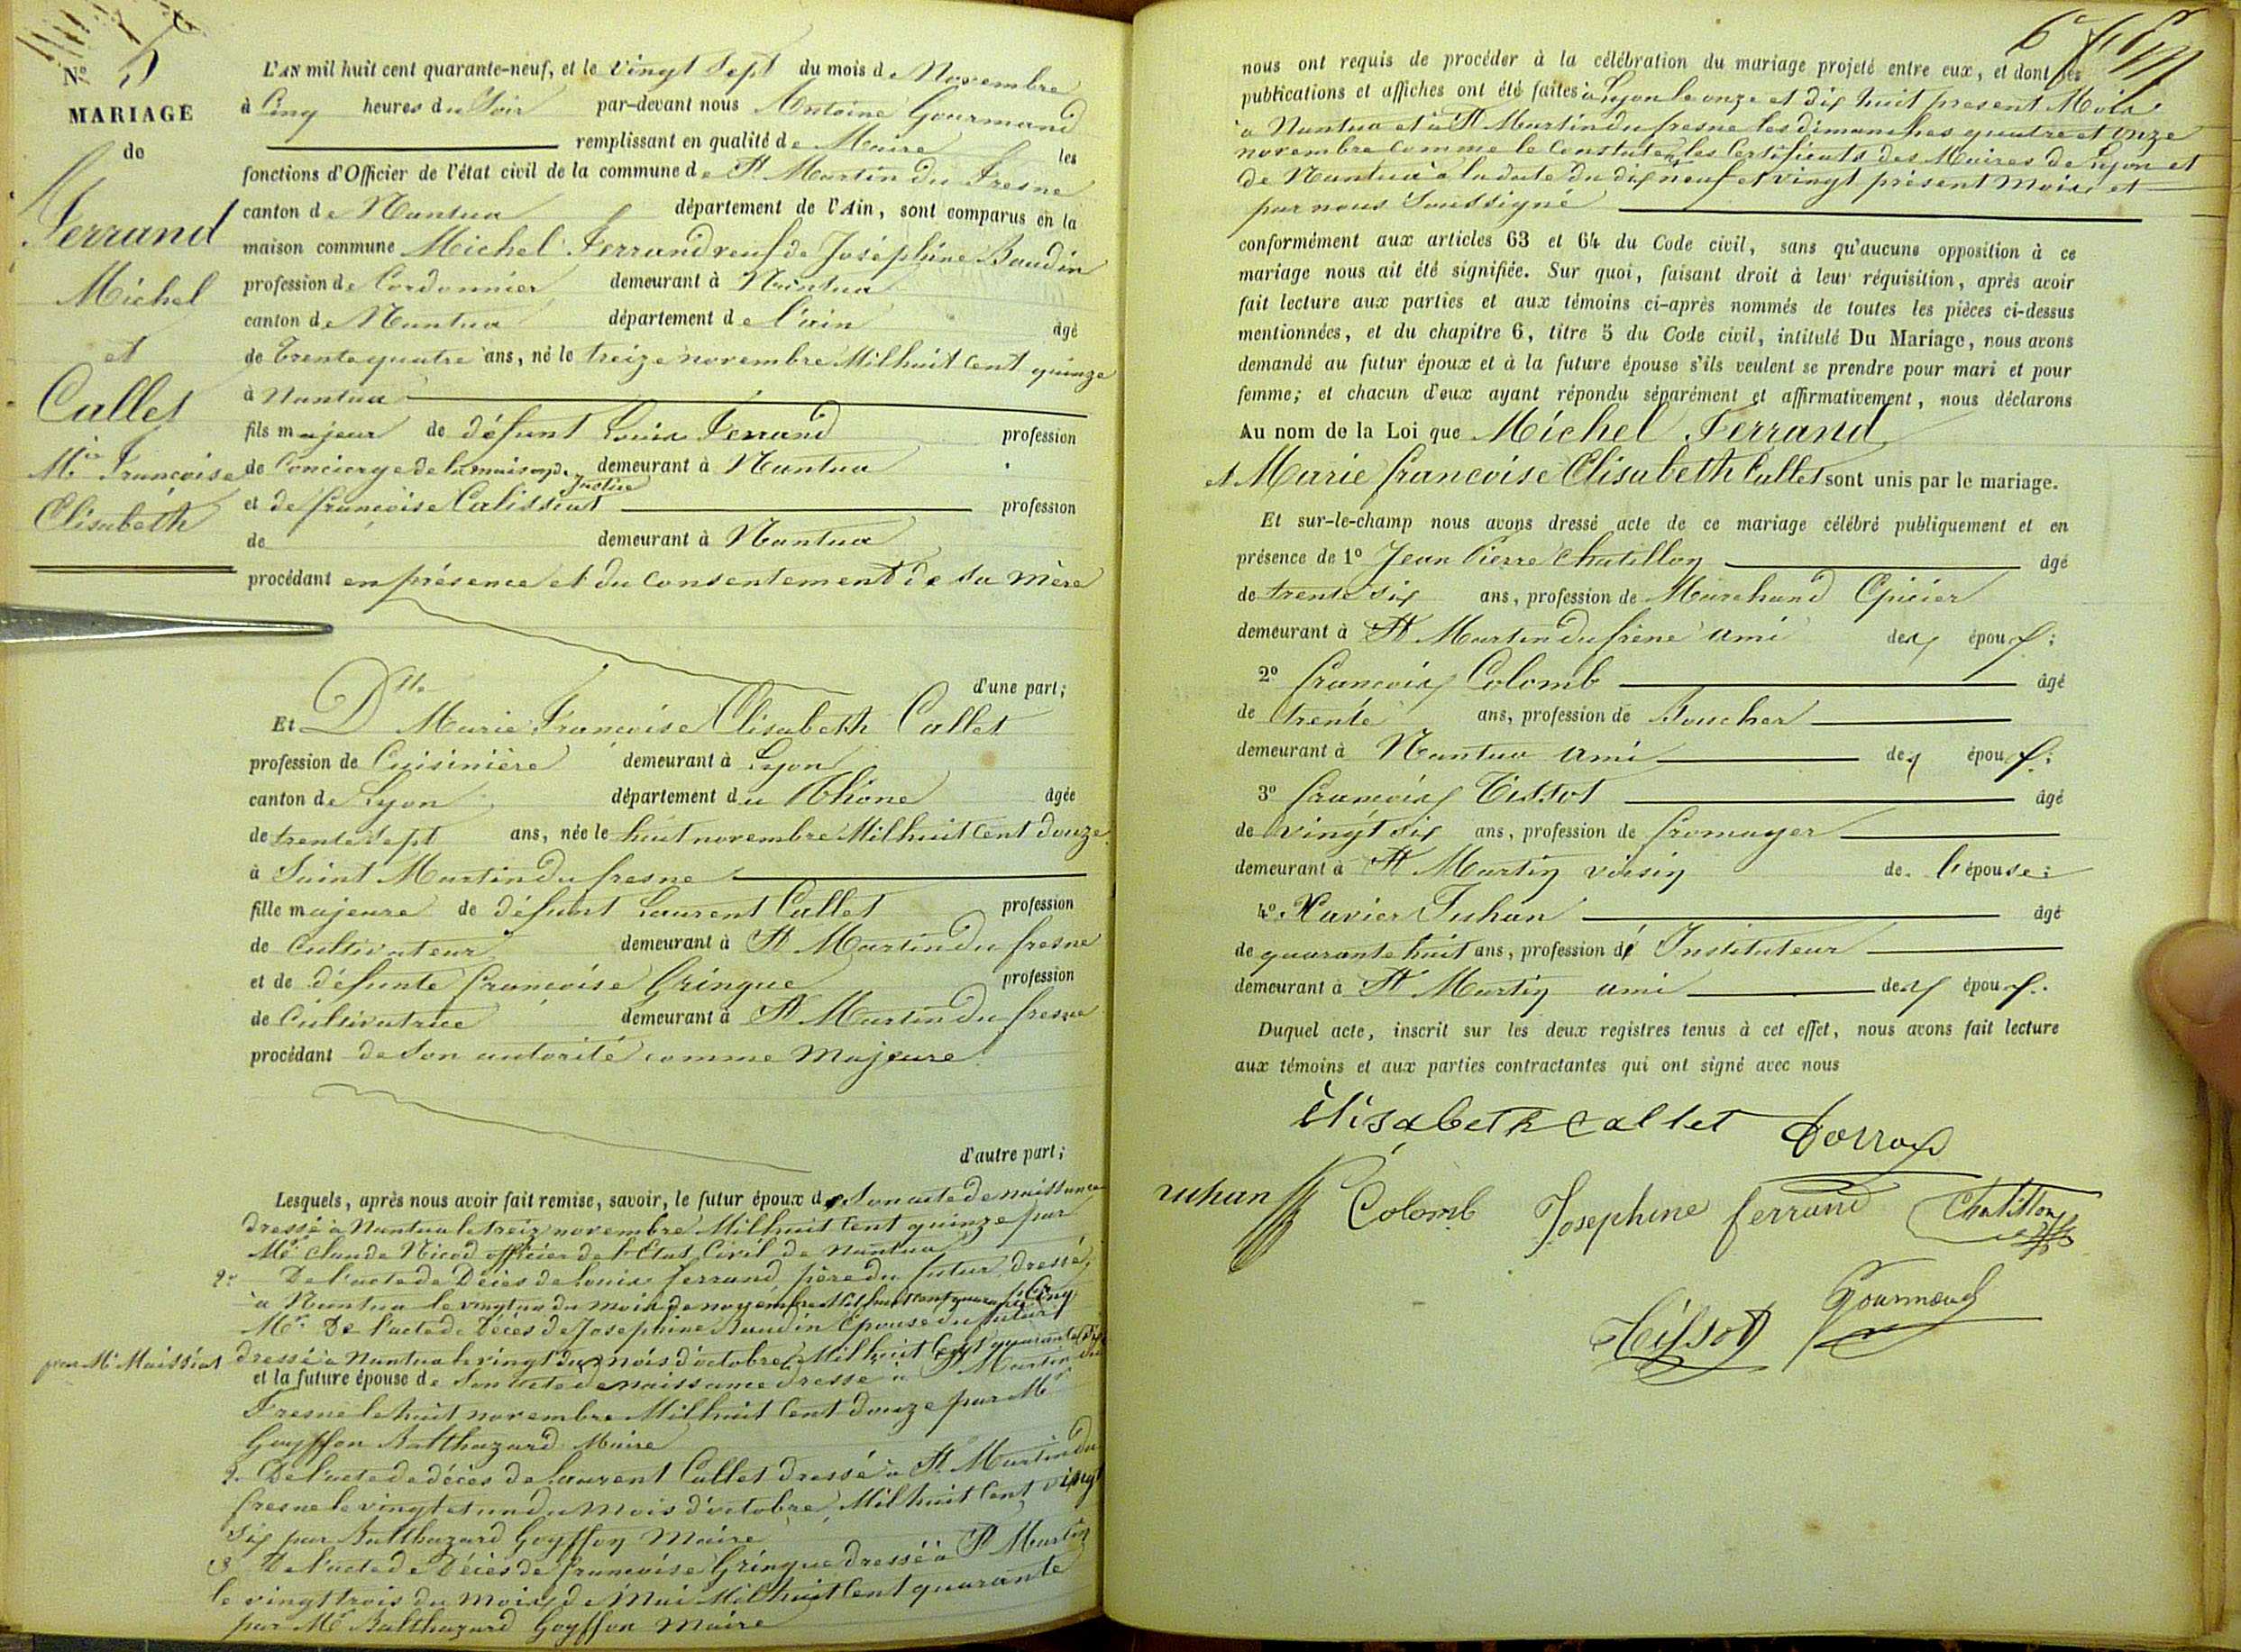 N° 5
MARIAGE
de
Ferrand
Michel
et
Callet
Mie Françoise
Elisabeth
L'AN mil huit cent quarante-neuf, et le vingt sept du mois de Novembre
à Cinq heures du Soir par-devant nous Antoine Gourmand
remplissant en qualité de Maire les
fonctions d'Officier de l'état civil de la commune de St Martin du Fresne
canton de Nantua département de l'Ain, sont comparus en la
maison commune Michel Ferrand veuf de Joséphine Baudin
profession de Cordonnier demeurant à Nantua
canton de Nantua département de l'ain âgé
de trente quatre ans, né le treize novembre Mil huit Cent quinze
à Nantua
fils majeur de défunt Louis Ferrand profession
de Concierge de la maison de Justice demeurant à Nantua
et de françoise Calissiat profession
de demeurant à Nantua
procédant en présence et du Consentement de sa mère
d'une part;
Et Dlle Marie Françoise Elisabeth Callet
profession de Cuisinière demeurant à Lyon
canton de Lyon département du Rhône âgée
de trente sept ans, née le huit novembre Mil huit Cent douze
à Saint Martin du fresne
fille majeure de défunt Laurent Callet profession
de Cultivateur demeurant à St Martin du fresne
et de défunte françoise Gringue profession
de Cultivatrice demeurant à St Martin du fresne
procédant de son autorité comme Majeure
d'autre part;
Lesquels, après nous avoir fait remise, savoir, le futur époux de Son acte de naissance
dressé à Nantua le treize novembre Mil huit Cent quinze par
Mr Claude Nicod officier de l'Etat Civil de Nantua
2° De l'acte de Décès de Louis ferrand père du futur dressé
à Nantua le vingt un du mois de novembre Mil huit cent quarante Cinq
De l'acte de Décès de Josephine Baudin Epouse du futur
dressé à Nantua le vingt du mois d'octobre Mil huit Cent quarante
par Mr Maissiat
et la future épouse de Son acte de naissance dressé à St Martin du
Fresne le huit novembre Mil huit Cent douze par Mr
Goyffon Balthazard Maire
2° De l'acte de décès de Laurent Callet dressé à St Martin du
fresne le vingt et un du Mois d'octobre Mil huit Cent vingt
Six par Balthazard Goyffon Maire
3 De l'acte de Décès de françoise Gringue dressé à St Martin
le vingt trois du Mois de Mai Mil huit Cent quarante
par Mr Balthazard Goyffon Maire
nous ont requis de procéder à la célébration du mariage projeté entre eux, et dont les
publications et affiches ont été faites à Lyon le onze et dix huit present Mois
à Nantua et à St Martin du fresne les dimanches quatre et onze
novembre comme le Constatent les Certificats des Maires de Lyon et
de Nantua à la date du dix neuf et vingt présent mois et
par nous Soussigné
conformément aux articles 63 et 64 du Code civil, sans qu'aucune opposition à ce
mariage nous ait été signifiée. Sur quoi, faisant droit à leur réquisition, après avoir
fait lecture aux parties et aux témoins ci-après nommés de toutes les pièces ci-dessus
mentionnées, et du chapitre 6, titre 5 du Code civil, intitulé Du Mariage, nous avons
demandé au futur époux et à la future épouse s'ils veulent se prendre pour mari et pour
femme; et chacun d'eux ayant répondu séparément et affirmativement, nous déclarons
Au nom de la Loi que Michel Ferrand
et Marie françoise Elisabeth Callet sont unis par le mariage.
Et sur-le-champ nous avons dressé acte de ce mariage célébré publiquement et en
présence de 1° Jean Pierre Chatillon âgé
de trente Six ans, profession de Marchand Epicier
demeurant à St Martin du frêne ami des époux;
2° françois Colomb âgé
de trente ans, profession de Boucher
demeurant à Nantua ami des époux;
3° françois Tissot âgé
de vingt six ans, profession de fromager
demeurant à St Martin voisin de l'épouse;
4° Xavier Juhan âgé
de quarante huit ans, profession d' Instituteur
demeurant à St Martin ami des époux.
Duquel acte, inscrit sur les deux registres tenus à cet effet, nous avons fait lecture
aux témoins et aux parties contractantes qui ont signé avec nous
élisabeth callet
juhan Colomb Josephine ferrand Chatillon
Tissot Gourmand